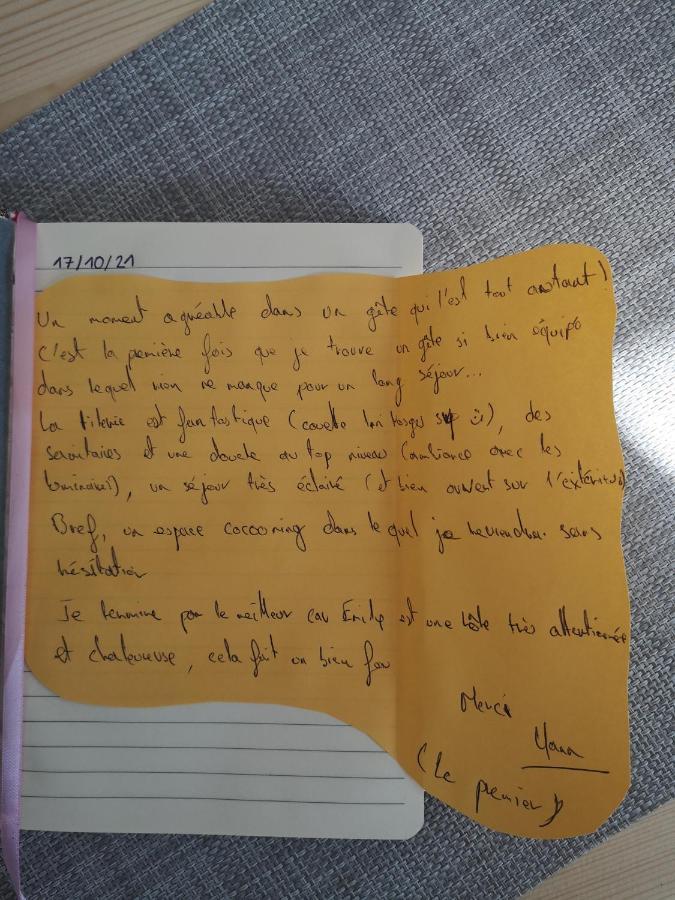 17/10/21
Un moment agréable dans un gîte qui l'est tout autant !
C'est la première fois que je trouve un gîte si bien équipé
dans lequel rien ne manque pour un long séjour...
La literie est fantastique (couette sup :)), des
sanitaires et une douche au top niveau (ambiance avec les
luminaires), un séjour très éclairé (et bien ouvert sur l'extérieur)
Bref, un espace cocooning dans lequel je reviendrai sans
hésitation
Je termine par le meilleur car Emily est une hôte très attentionnée
et chaleureuse, cela fait un bien fou
Merci
Yann
(Le premier)